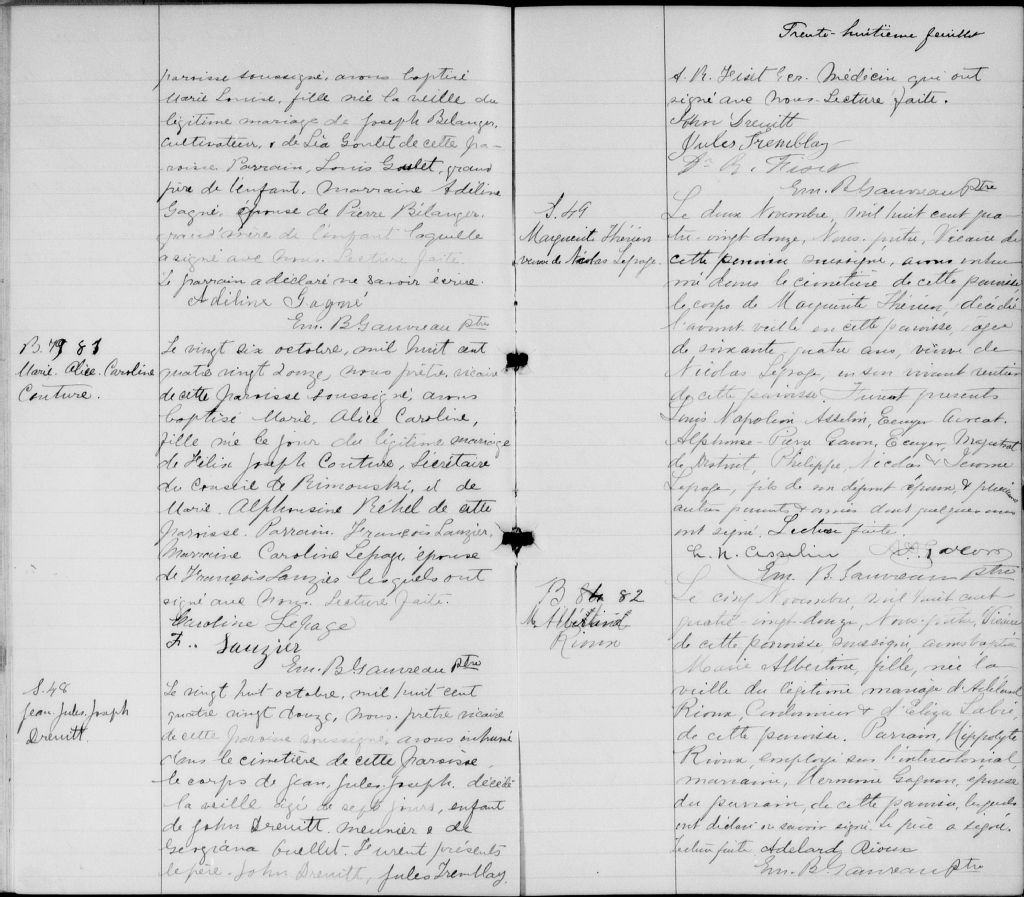 paroisse soussigné, avons baptisé
Marie Louise, fille née la veille du
légitime mariage de Joseph Bélanger,
cultivateur, & de Léa Goulet de cette pa-
roisse. Parrain, Louis Goulet, grand
père de l'enfant, marraine Adéline
Gagné, épouse de Pierre Bélanger,
grand'mère de l'enfant laquelle
a signé avec nous. Lecture faite.
Le parrain a déclaré ne savoir écrire.
Adéline Gagné
Em. B Gauvreau ptre
B. 81
Marie. Alice. Caroline
Couture.
Le vingt six octobre, mil huit cent
quatre vingt douze, nous prêtre, vicaire
de cette paroisse soussigné, avons
baptisé Marie, Alice Caroline,
fille née ce jour du légitime mariage
de Félix Joseph Couture, Sécrétaire
du Conseil de Rimouski, et de
Marie. Alphonsine Réhel de cette
paroisse. Parrain François Lauzier,
Marraine Caroline Lepage, épouse
de François Lauzier lesquels ont
signé avec nous. Lecture faite.
Caroline Lepage
F.. Lauzier
Em. B Gauvreau ptre
S. 48
Jean. Jules. Joseph
Drewitt.
Le vingt huit octobre, mil huit cent
quatre vingt douze, nous. prêtre vicaire
de cette paroisse soussigné, avons inhumé
dans le cimetière de cette paroisse,
le corps de Jean, Jules Joseph, décédé
la veille agé de sept jours, enfant
de John Drewitt, meunier & de
Georgiana Ouellet. Furent présents
le père - John Drewitt, Jules Tremblay,
Trente-huitième feuillet
A. R. Fiset Ecr. Médecin qui ont
signé avec nous. Lecture faite.
John Drewitt
Jules Tremblay
Dr R. Fiset
Em. B Gauvreau Ptre
S. 49
Marguerite Thérien
veuve de Nicolas Lepage.
Le deux Novembre, mil huit cent qua-
tre-vingt douze, Nous, prêtre, Vicaire de
cette paroisse soussigné, avons inhu-
mé dans le cimetière de cette paroisse
le corps de Marguerite Thérien, décédée
l'avant veille en cette paroisse, agée
de soixante quatre ans, veuve de
Nicolas Lepage, en son vivant rentier
de cette paroisse. Furent présents
Louis Napoléon Asselin, Ecuyer Avocat.
Alphonse-Pierre Garon, Ecuyer, Magistrat
de District, Philippe, Nicolas & Jerome
Lepage, fils de son défunt époux, & plusieurs
autres parents & amies dont quelques-uns
ont signé. Lecture faite.
L. N. Asselin
Garon
Em. B. Gauvreau ptre
B 82
M. Albertine
Rioux
Le cinq Novembre, mil huit cent
quatre-vingt douze, Nous, prêtre, Vicaire
de cette paroisse soussigné, avons baptisé
Marie Albertine, fille, née la
veille du légitime mariage d'Adélard
Rioux, Cordonnier & d'Eliza Labrie,
de cette paroisse. Parrain, Hippolyte
Rioux, employé sur l'intercolonial,
marraine, Hermine Gagnon, épouse
du parrain, de cette paroisse, lesquels
ont déclaré ne savoir signé. Le père a signé.
Lecture faite Adelard Rioux
Em. B. Gauvreau ptre